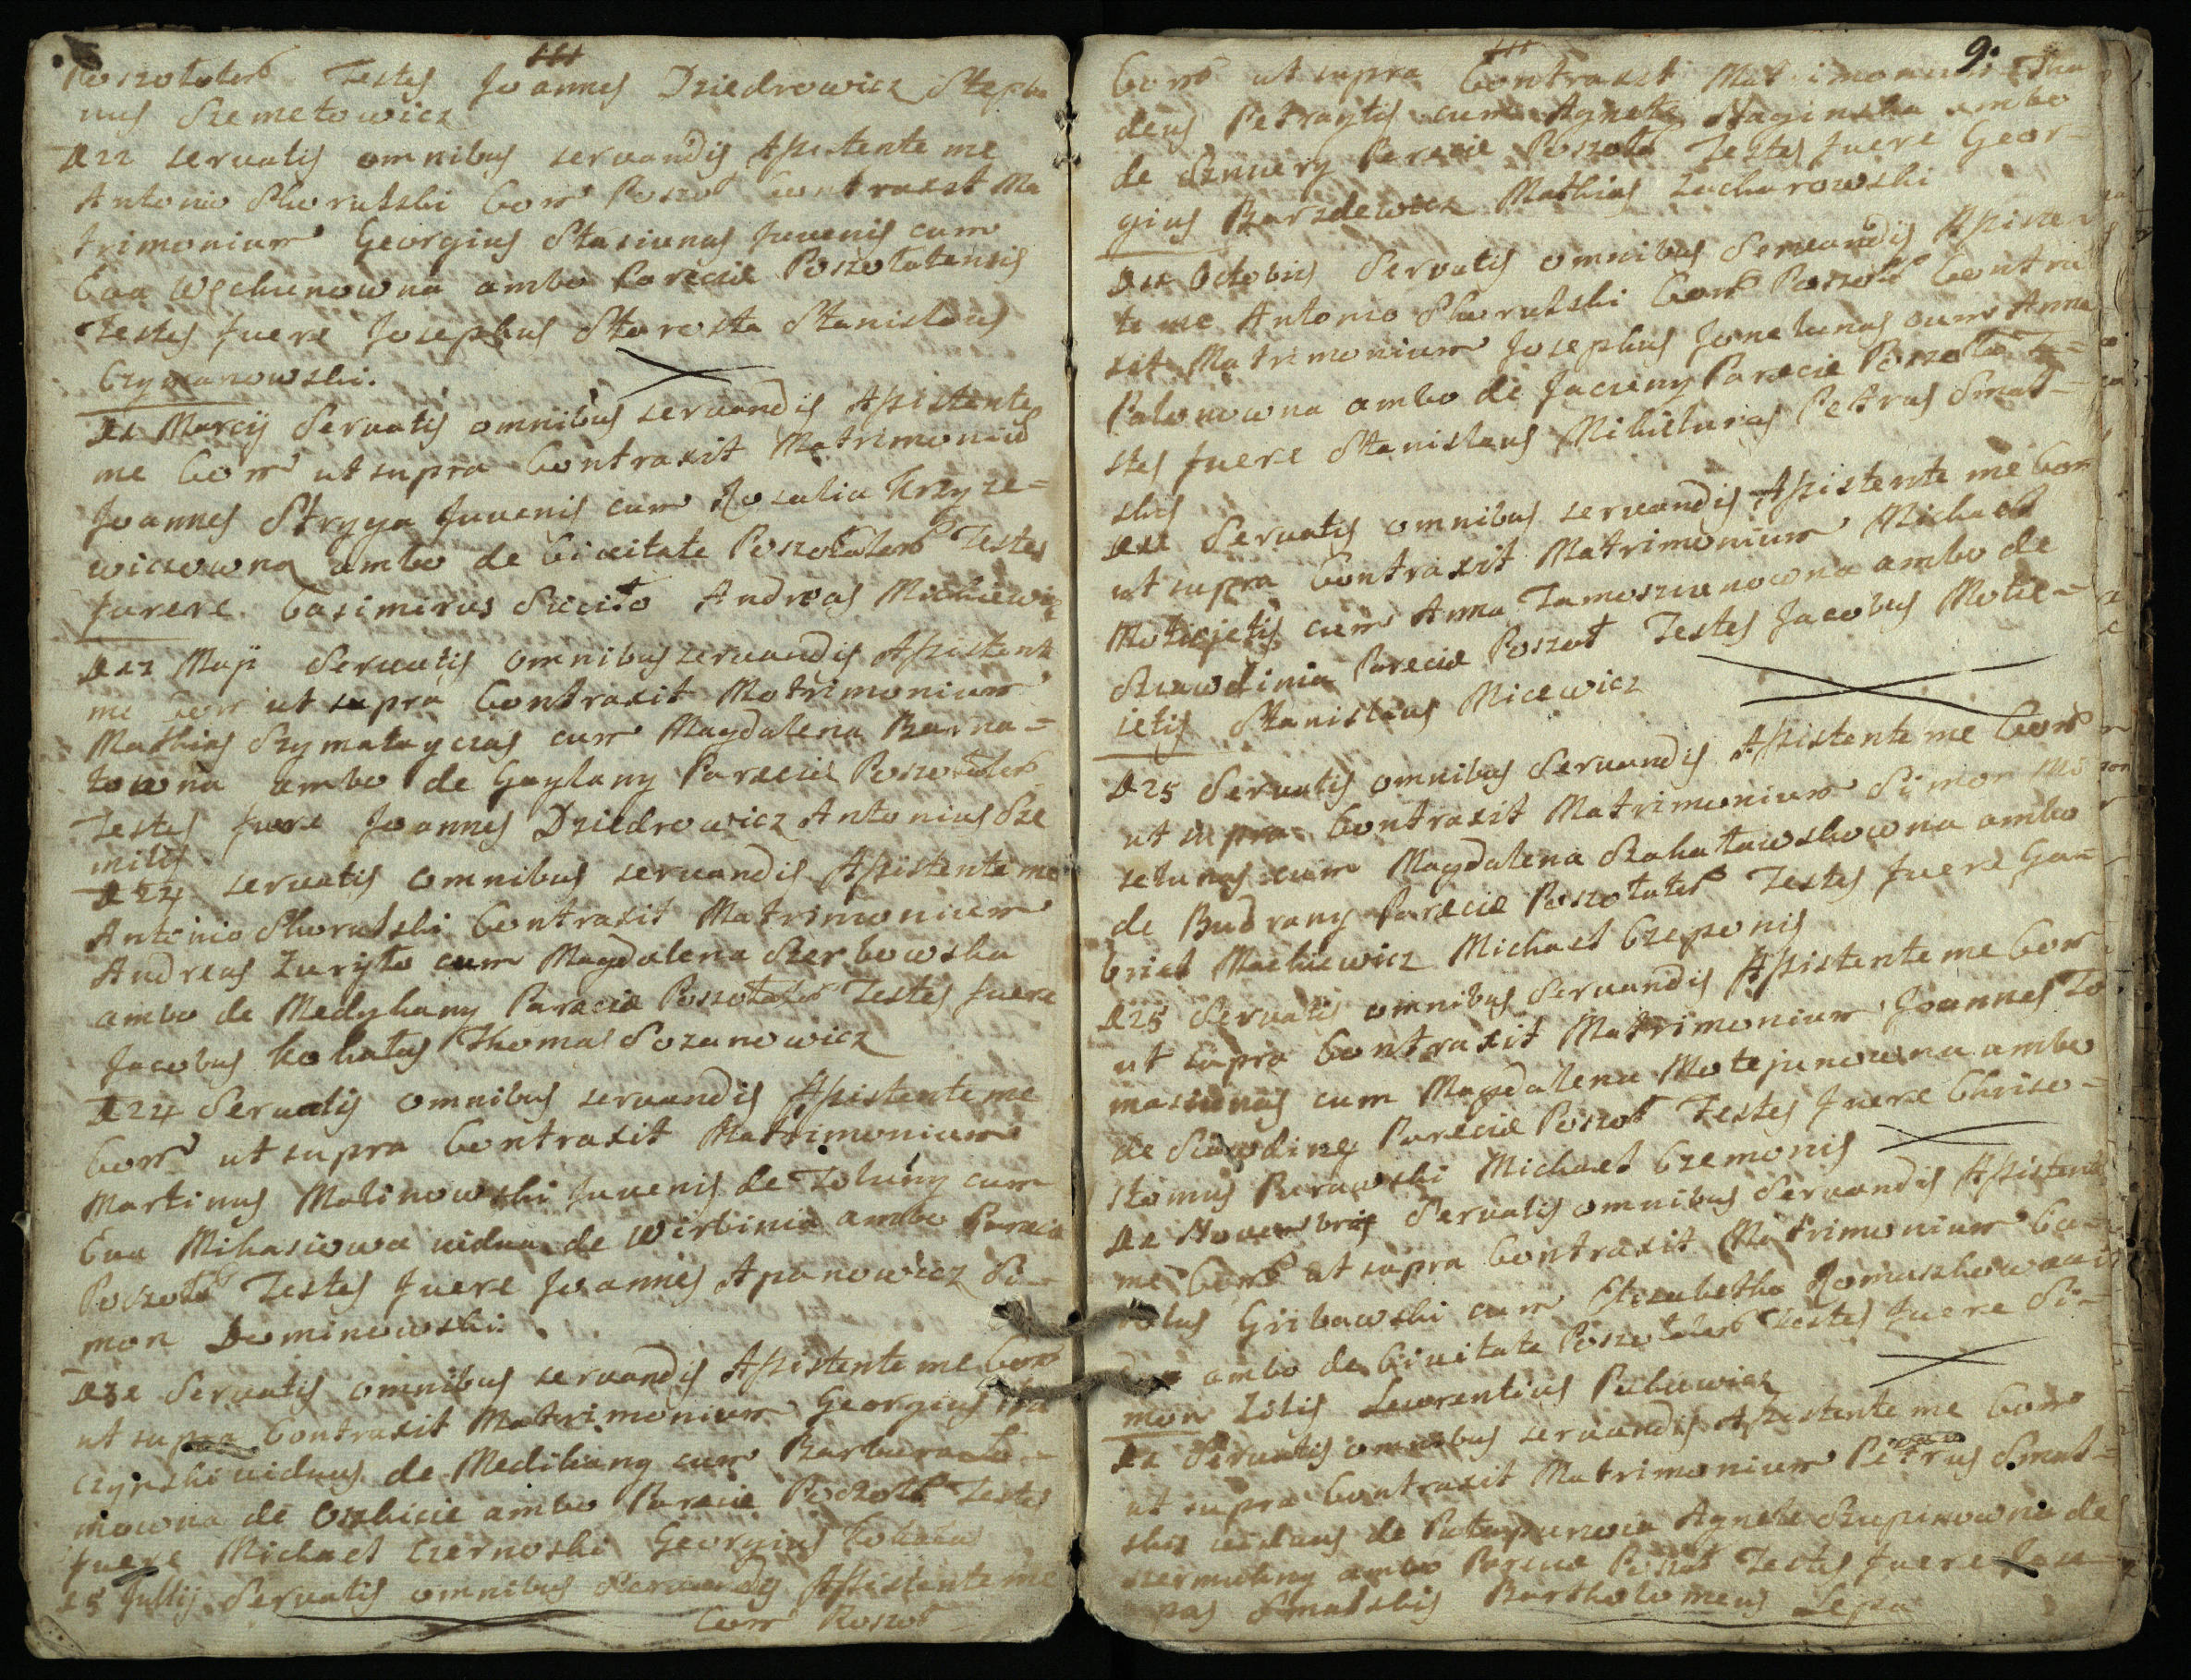 Poszołaten Testes Joannes Dziedrowicz Stepha
nus Szemetowicz
D 22 servatis omnibus servandis Assistente me
Antonio Skorulski Com Poszoł Contraxit Ma
trimonium Georgius Stasiunas Juvenis cum
Eva Węchunowna ambo Parecia Poszołatensis
Testes fuere Josephus Starosta Stanislaus
Czymanowski.
D 1 Marcij Servatis omnibus servandis Assistente
me Com ut supra Contraxit Matrimoniu
Joannes Stryga Juvenis cum Rosalia Krzyze=
wiczowna ambo de Civitate Poszołaten Testes
fuere Casimirus Suciło Andreas Mickiewicz
D 12 Maji Servatis omnibus servandis Assistente
me Com ut supra Contraxit Matrimonium
Mathias Szymałayczas cum Magdalena Barna=
towna ambo de Gaylany Pareciæ Poszołaten
Testes fuere Joannes Dziedrowicz Antonius Sze
milis
D 24 servatis omnibus servandis Assistente me
Antonio Skorulski Contraxit Matrimonium
Andreas Zuryło cum Magdalena Szerbowska
ambo de Medykany Pareciæ Poszołaten Testes fuere
Jacobus Kokatas Thomas Sozanowicz
D 24 Servatis omnibus servandis Assistente me
Com ut supra Contraxit Matrimonium
Martinus Malinowski Juvenis de Toluny cum
Eva Mikasiowa vidua de Wirbinia ambo Pareciæ
Poszołt Testes fuere Joannes Apanowicz Si=
mon Dominowski.
D 31 Servatis omnibus servandis Assistente me Com
ut supra Contraxit Matrimonium Georgius
czynski viduus de Medikany cum Barbara
mowna de Oszkicie ambo Pareciæ Poszołt Testes
fuere Michael Czernoski Georgius Kokata
15 Jullij Servatis omnibus Servandis Assistente me
Com Poszoł
9.
Com ut supra Contraxit Matrimonium Tha
deus Petraytis cum Agneta Raginska ambo
de Sznuery Pareciæ Poszołt Testes fuere Geor=
gius Barzdewicz Mathias Zacharowski
D 11 Octobris Servatis omnibus Servandis Assisten
te me Antonio Skorulski Com Poszołt Contra
xit Matrimonium Josephus Jonelunas cum Anna
Palonowna ambo de Jacuny Pareciæ Poszołt Te=
stes fuere Stanislaus Mikielunas Petrus Smal=
skis
D 11 Servatis omnibus servandis Assistente me Com
ut supra Contraxit Matrimonium Michael
Motiejetis cum Anna Tamoszunowna ambo de
Skawdinia Pareciæ Poszoł Testes Jacobus Motie=
ietis Stanislaus Micewicz
D 25 Servatis omnibus Servandis Assistente me Com
ut supra Contraxit Matrimonium Simon Mi
setunas cum Magdalena Rakatawskowna ambo
de Budrany Pareciæ Poszołaten Testes fuere Ga=
briel Mackiewicz Michael Czeponis
D 25 Servatis omnibus Servandis Assistente me Com
ut supra Contraxit Matrimonium Joannes To
masiunas cum Magdalena Motejunowna ambo
de Skawdiny Pareciæ Poszoł Testes fuere Chriso=
stomus Purawski Michael Czemonis
D 2 Novembris Servatis omnibus Servandis Assistente
me Com ut supra Contraxit Matrimonium Ca=
rolus Gribowski cum Elizabetha Romuszkowna
ambo de Civitate Poszołaten Testes fuere Si=
mon Zilis Laurentius Pukawicz
D 2 Servatis omnibus servandis Assistente me Com
ut supra Contraxit Matrimonium Petrus Smal=
skis viduus de Agneta Stupinowna de
ambo Pareciæ Poszoł Testes fuere
pas Smalskis Bartholomeus Lepa